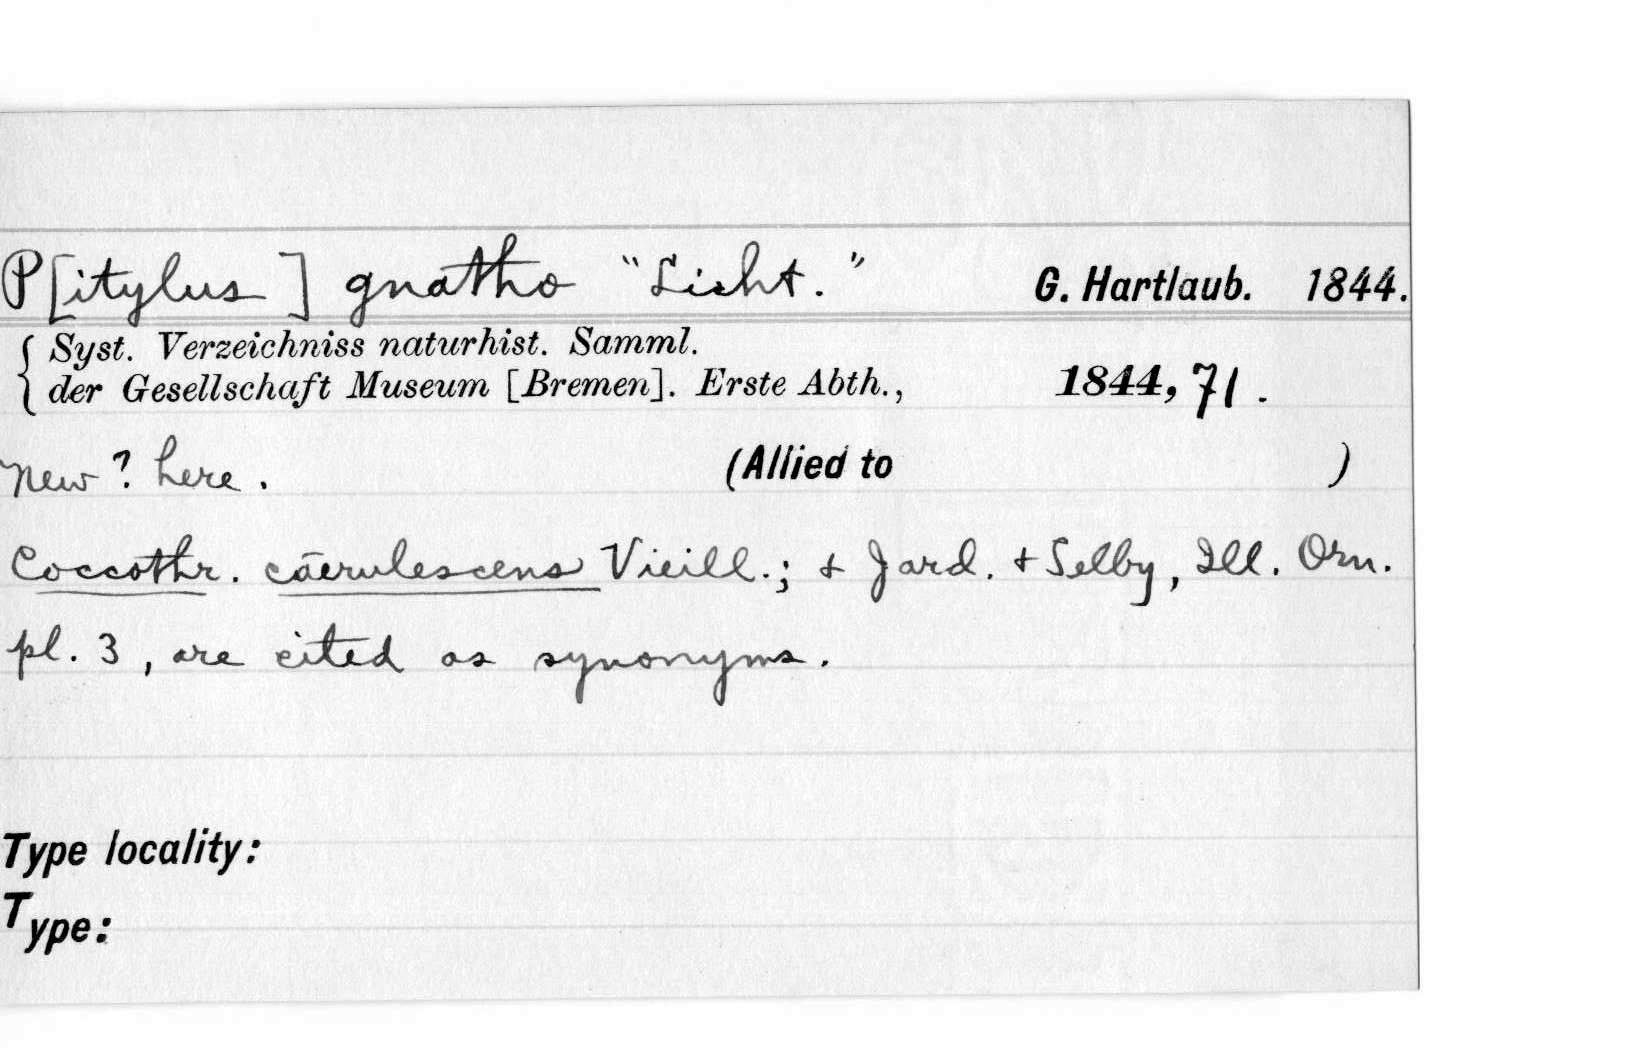 P[itylus] gnatho "Licht." G. Hartlaub. 1844.
{ Syst. Verzeichniss naturhist. Samml.
der Gesellschaft Museum [Bremen]. Erste Abth., 1844, 71.
New? here. (Allied to )
Coccothr. cäerulescens Vieill.; & Jard. & Selby, Ill. Orn.
pl. 3, are cited as synonyms.
Type locality:
Type: